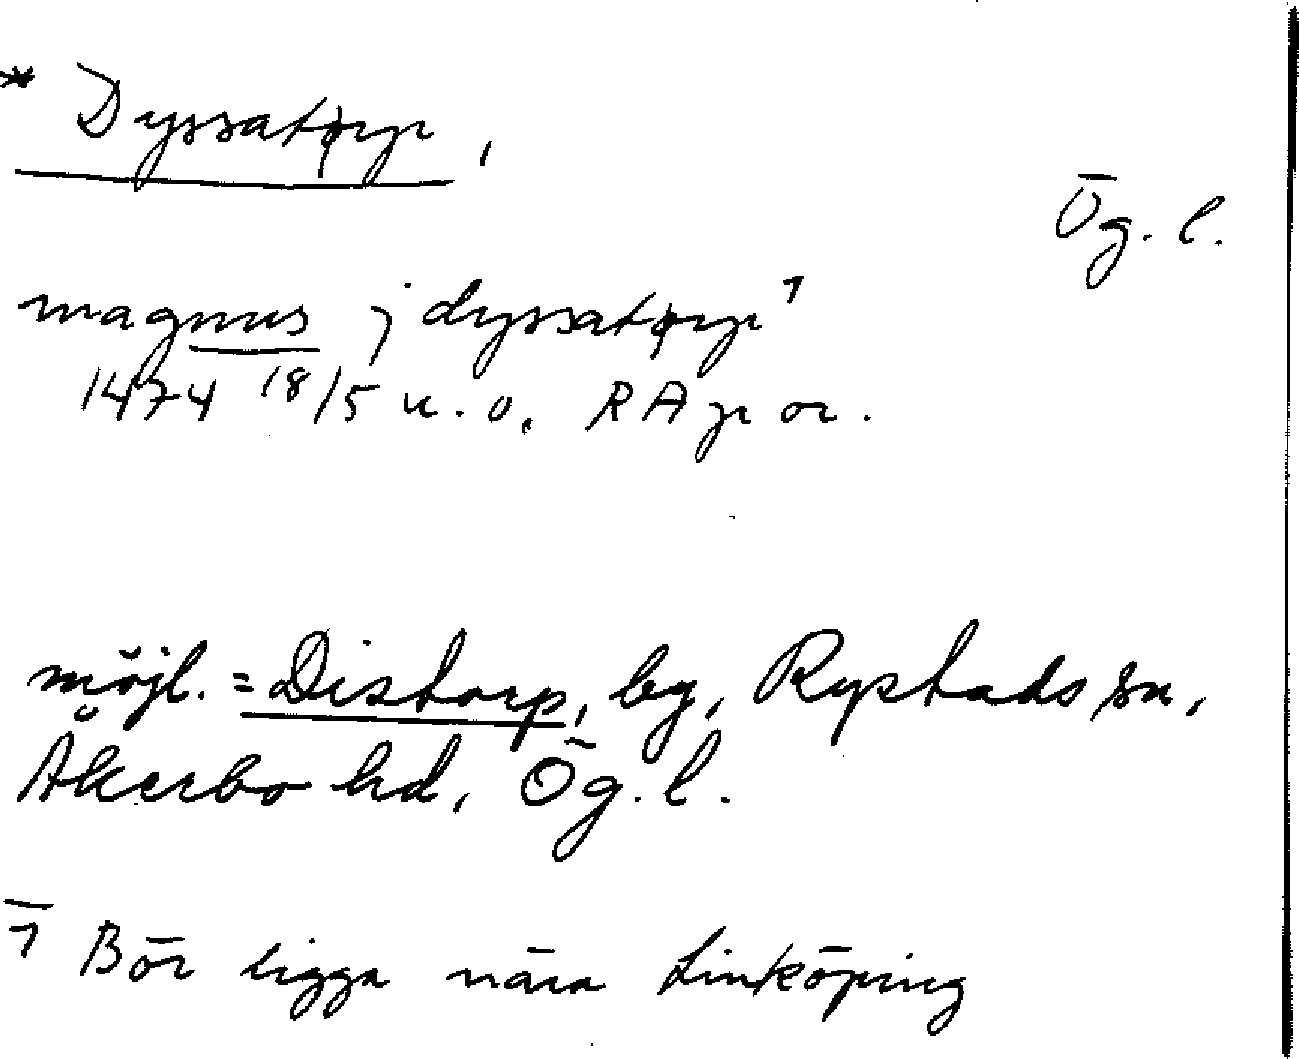 * Dyssatørp,
Ög. l.
magnus j dyssatørp 1
1474 18/5 u. o. RA p or.
möjl. = Distorp, by, Rystads sn,
Åkerbo hd, Ög. l.
1 Bör ligga nära Linköping